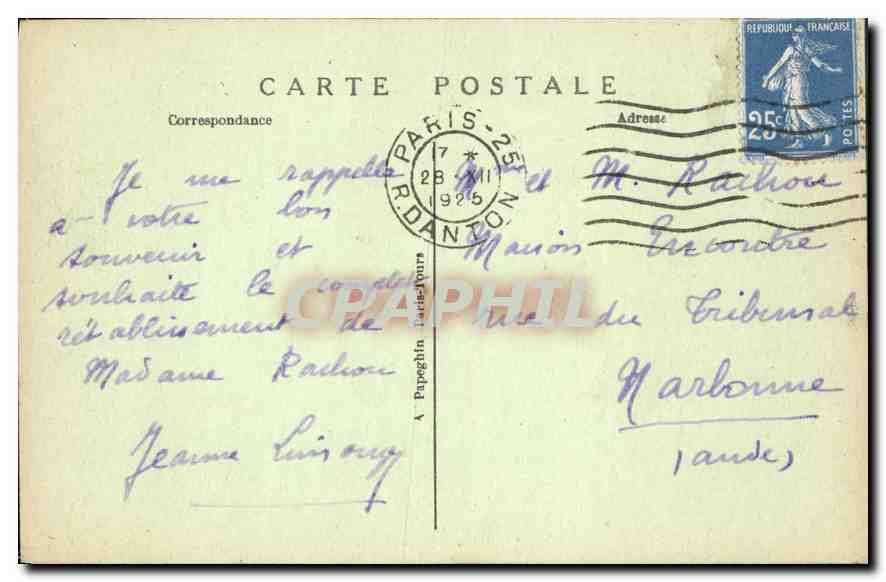 CARTE POSTALE
Correspondance
Adresse
REPUBLIQUE FRANÇAISE
25c
POSTES
PARIS - 25
7 *
28 - XII
1925
R. DANTON
Je me rappelle
a votre bon
souvenir et
souhaite le complet
rétablissement de
Madame Rachou
Jeanne
A Papeghin Paris-Tours
Mme et M. Rachou
Maison Encontre
rue du Tribunal
Narbonne
(aude)
CPAPHIL